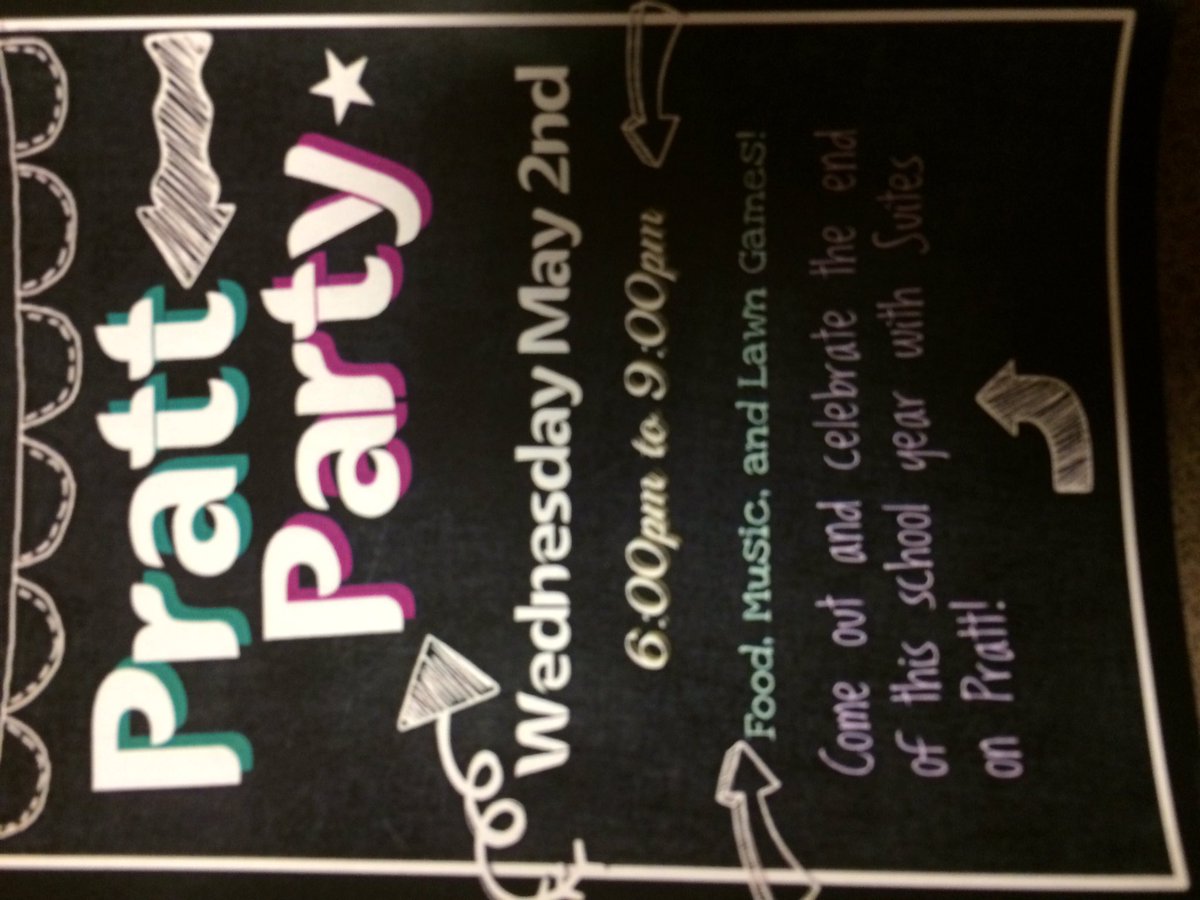 Pratt
Party
Wednesday May 2nd
6:00pm to 9:00pm
Food, Music, and Lawn Games!
Come out and celebrate the end
of this school year with Suites
on Pratt!